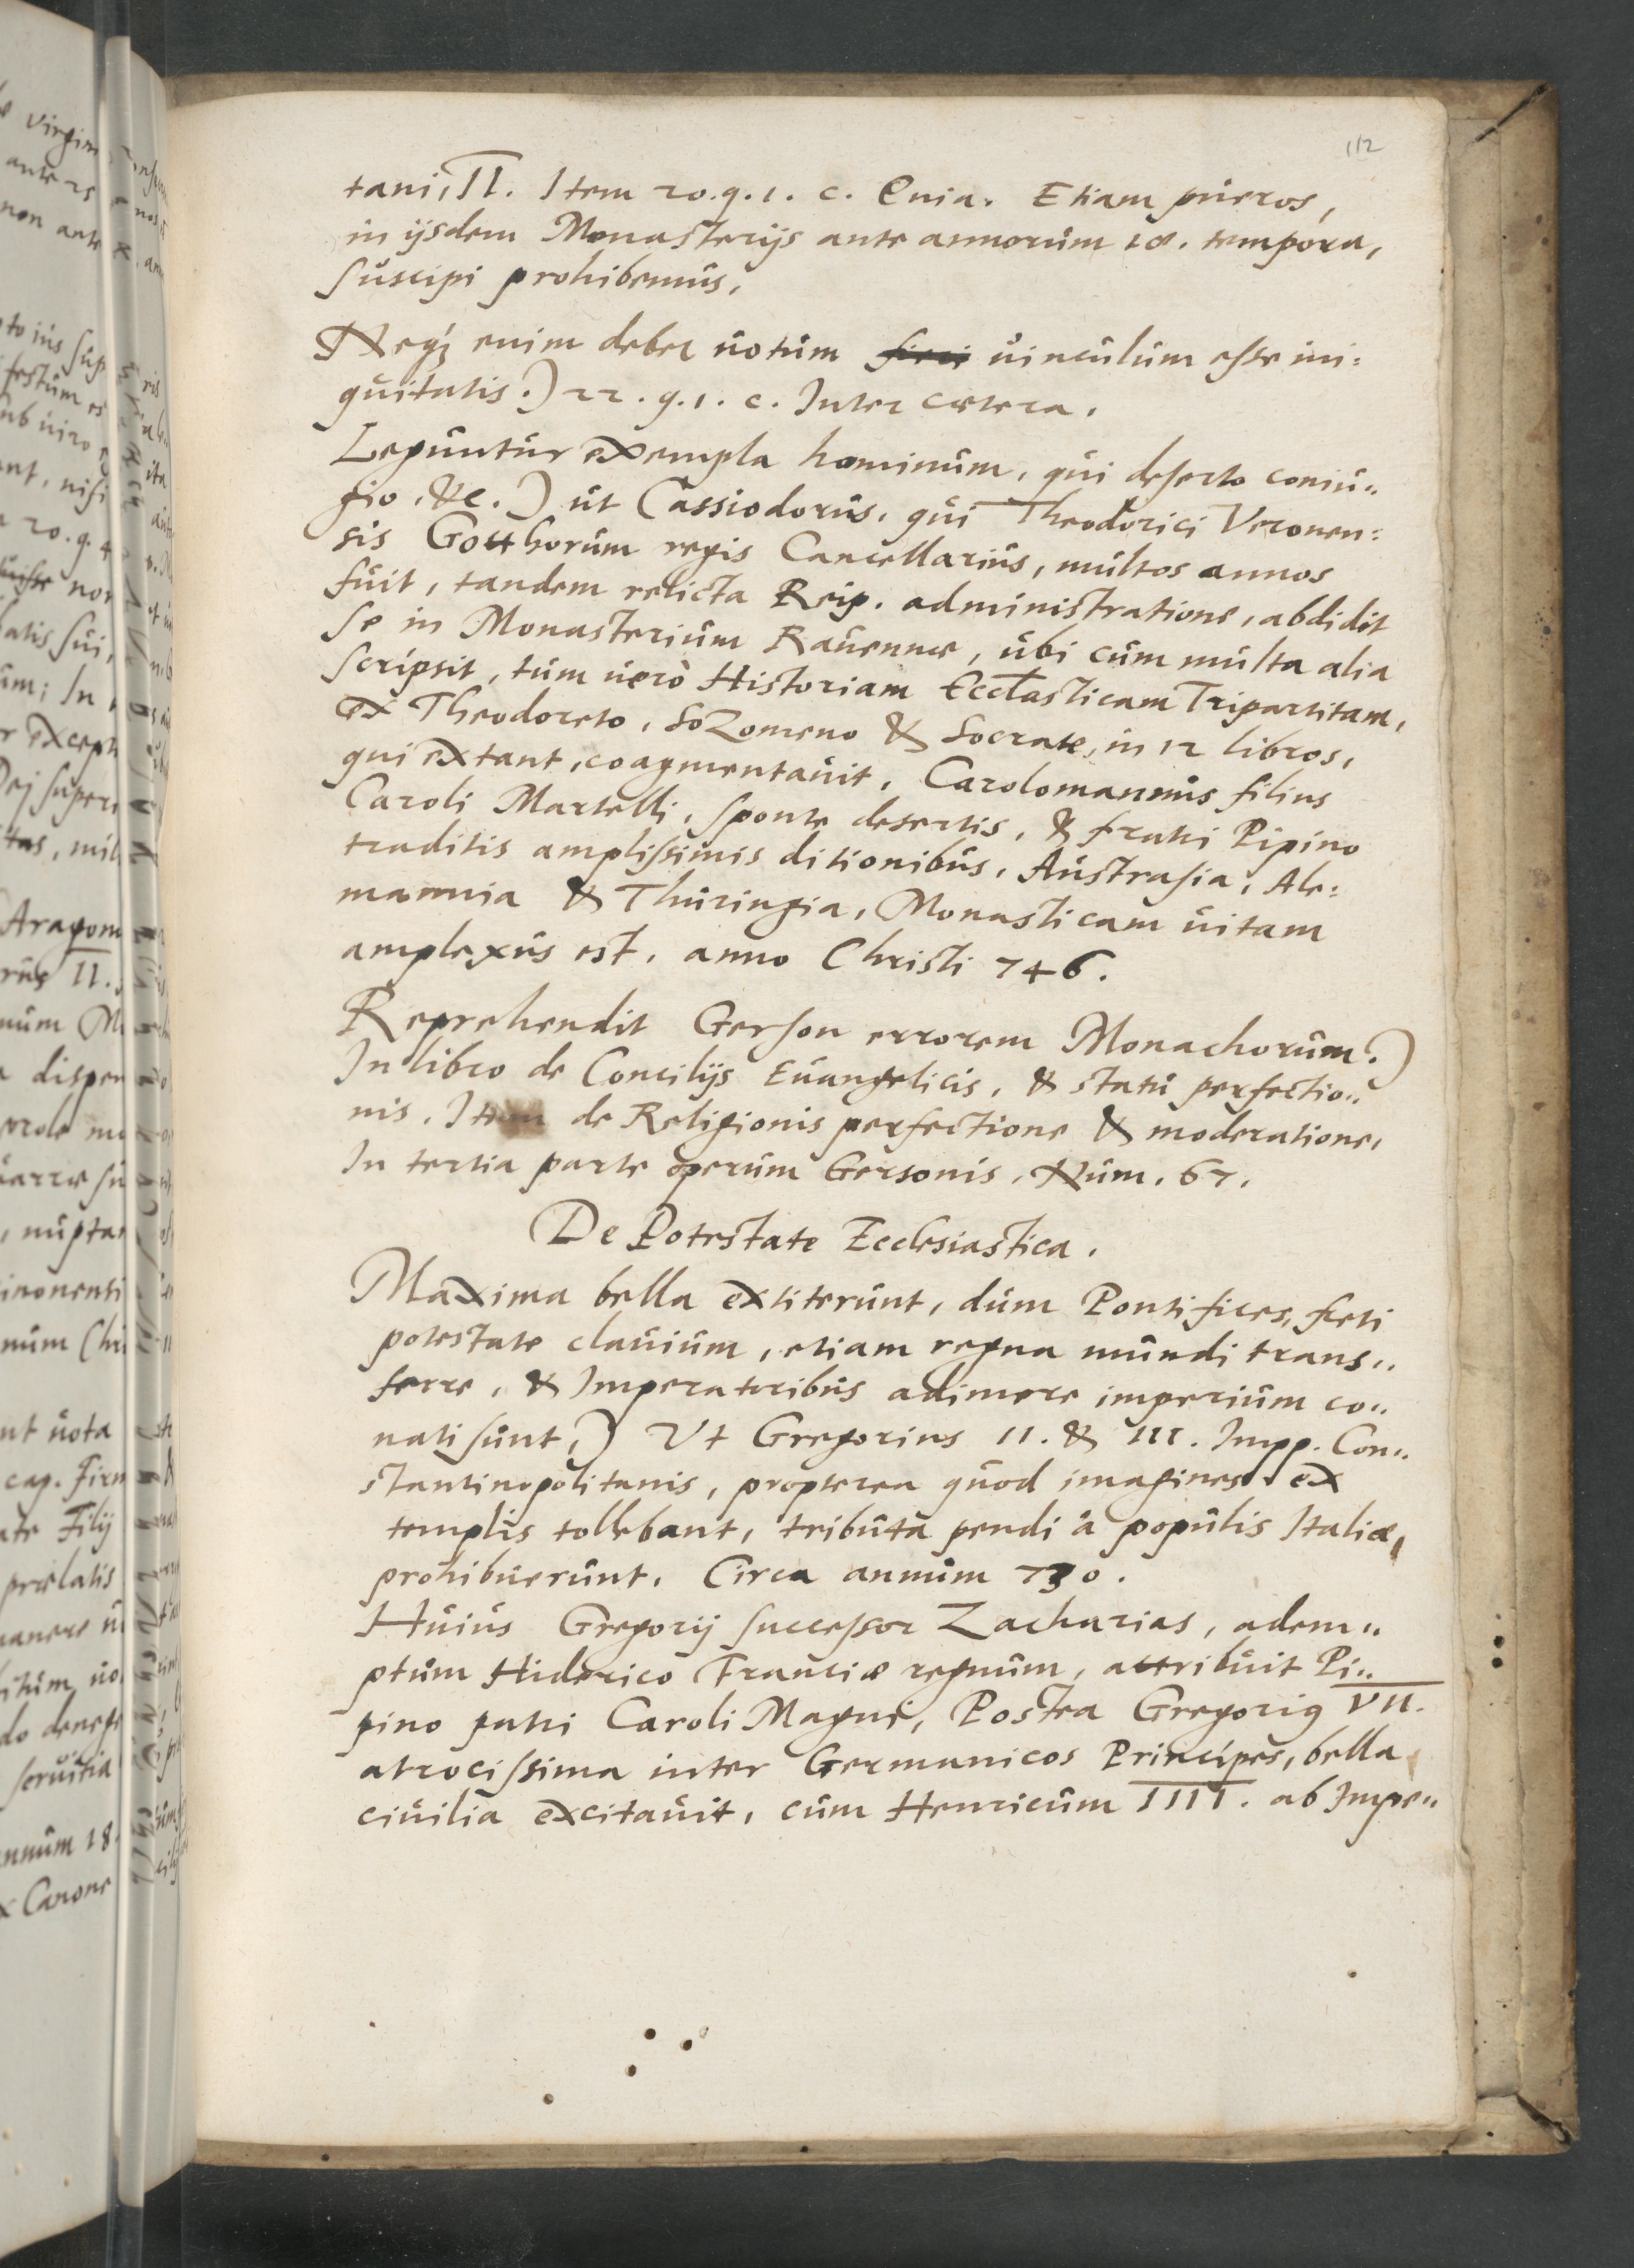 112
tani, II. Item 20. q. 1. c. Quia. Etiam pueros,
in ijsdem Monasterijs ante annorum 18. tempora,
suscipi prohibemus.
Neq; enim debet uotum fieri uinculum esse ini:
quitatis.) 22. q. 1. c. Inter cætera.
Leguntur exempla hominum, qui deserto coniu„
gio, &c.) ut Cassiodorus, qui Theodorici Veronen:
sis Gotthorum regis Cancellarius, multos annos
fuit, tandem relicta Reip. administratione, abdidit
se in Monasterium Rauennæ, ubi cum multa alia
scripsit, tum uerò Historiam Ecclasticam Tripartitam,
ex Theodoreto, Sozomeno & Socrate, in 12 libros,
qui extant, coagmentauit. Carolomannus filius
Caroli Martelli, sponte desertis, & fratri Pipino
traditis amplissimis ditionibus, Austrasia, Ale:
mannia & Thuringia, Monasticam uitam
amplexus est, anno Christi 746.
Reprehendit Gerson errorem Monachorum.)
In libro de Consilijs Euangelicis, & statu perfectio„
nis. Item de Religionis perfectione & moderatione,
In tertia parte operum Gersonis, Num. 67.
De Potestate Ecclesiastica.
Maxima bella extiterunt, dum Pontifices, freti
potestate clauium, etiam regna mundi trans„
ferre, & Imperatoribus adimere imperium co„
nati sunt,) Vt Gregorius II. & III. Impp. Con„
stantinopolitanis, propterea quod imagines ex
templis tollebant, tributa pendi à populis Italiæ,
prohibuerunt. Circa annum 730.
Huius Gregorij successor Zacharias, adem„
ptum Hiderico Franciæ regnum, attribuit Pi„
pino patri Caroli Magni, Postea Gregorius VII.
atrocissima inter Germanicos Principes, bella
ciuilia excitauit, cum Henricum IIII. ab Impe„